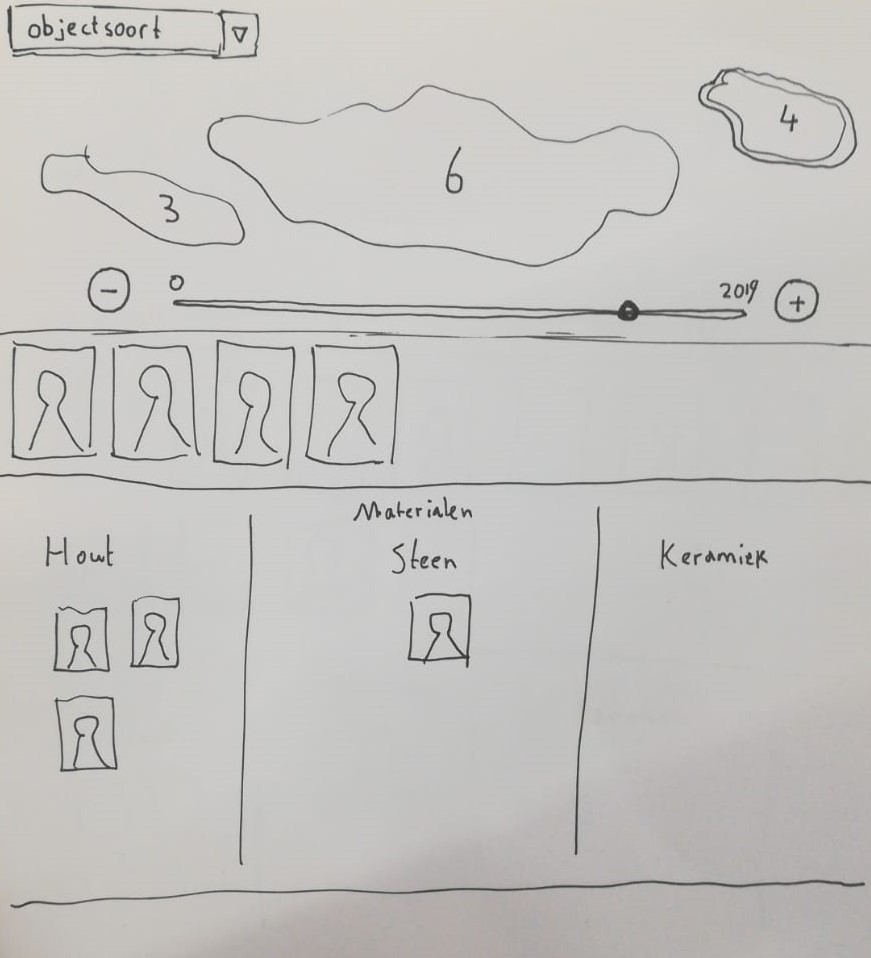 objectsoort
6
4
3
0
2019
Materialen
Hout
Steen
Keramiek